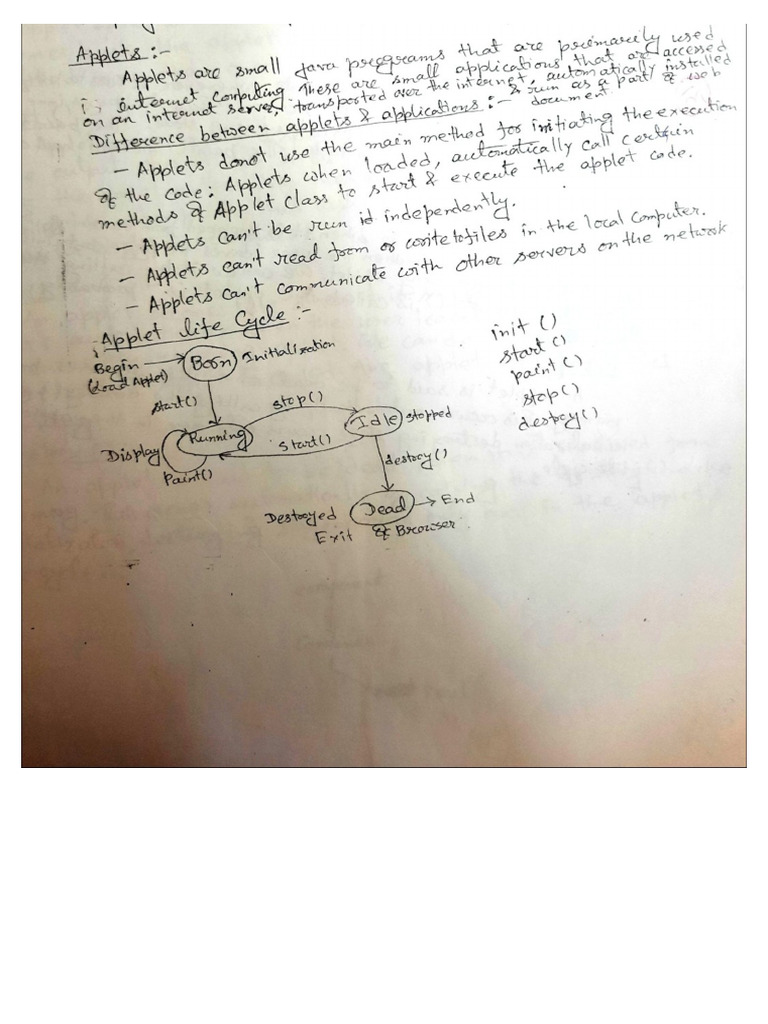 Applets :-
Applets are small Java programs that are primarily used
in internet computing. These are small applications that are accessed
on an internet server, transported over the internet, automatically installed
& run as a part of web
document.
Difference between applets & applications :-
- Applets donot use the main method for initiating the execution
of the code; Applets when loaded, automatically call certain
methods of Applet Class to start & execute the applet code.
- Applets can't be run id independently.
- Applets can't read from or write to files in the local computer.
- Applets can't communicate with other servers on the network
Applet life Cycle :-
Begin
(Load Applet)
Born
Initialization
start()
stop()
Idle
stopped
Display
Running
start()
paint()
destroy()
Destroyed
Dead
End
Exit of Browser
init ()
start ()
paint ()
stop ()
destroy ()